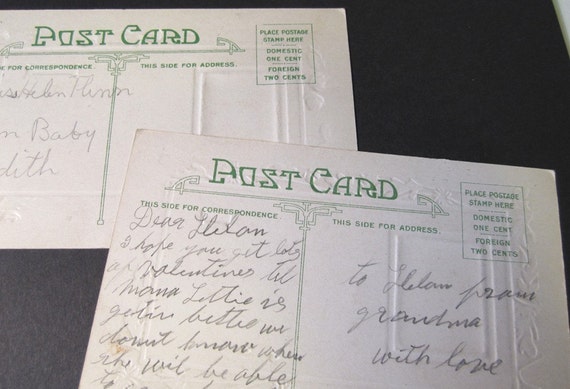 POST CARD
PLACE POSTAGE
STAMP HERE
DOMESTIC
ONE CENT
FOREIGN
TWO CENTS
SIDE FOR CORRESPONDENCE
THIS SIDE FOR ADDRESS.
Baby
POST CARD
PLACE POSTAGE
STAMP HERE
DOMESTIC
ONE CENT
FOREIGN
TWO CENTS
THIS SIDE FOR CORRESPONDENCE.
THIS SIDE FOR ADDRESS.
Dear Helan
I hope you get lots
of valentines tel
mama Lettie is
getin bettie we
dount know when
she wil be able
to
to Helan fram
grandma
with love